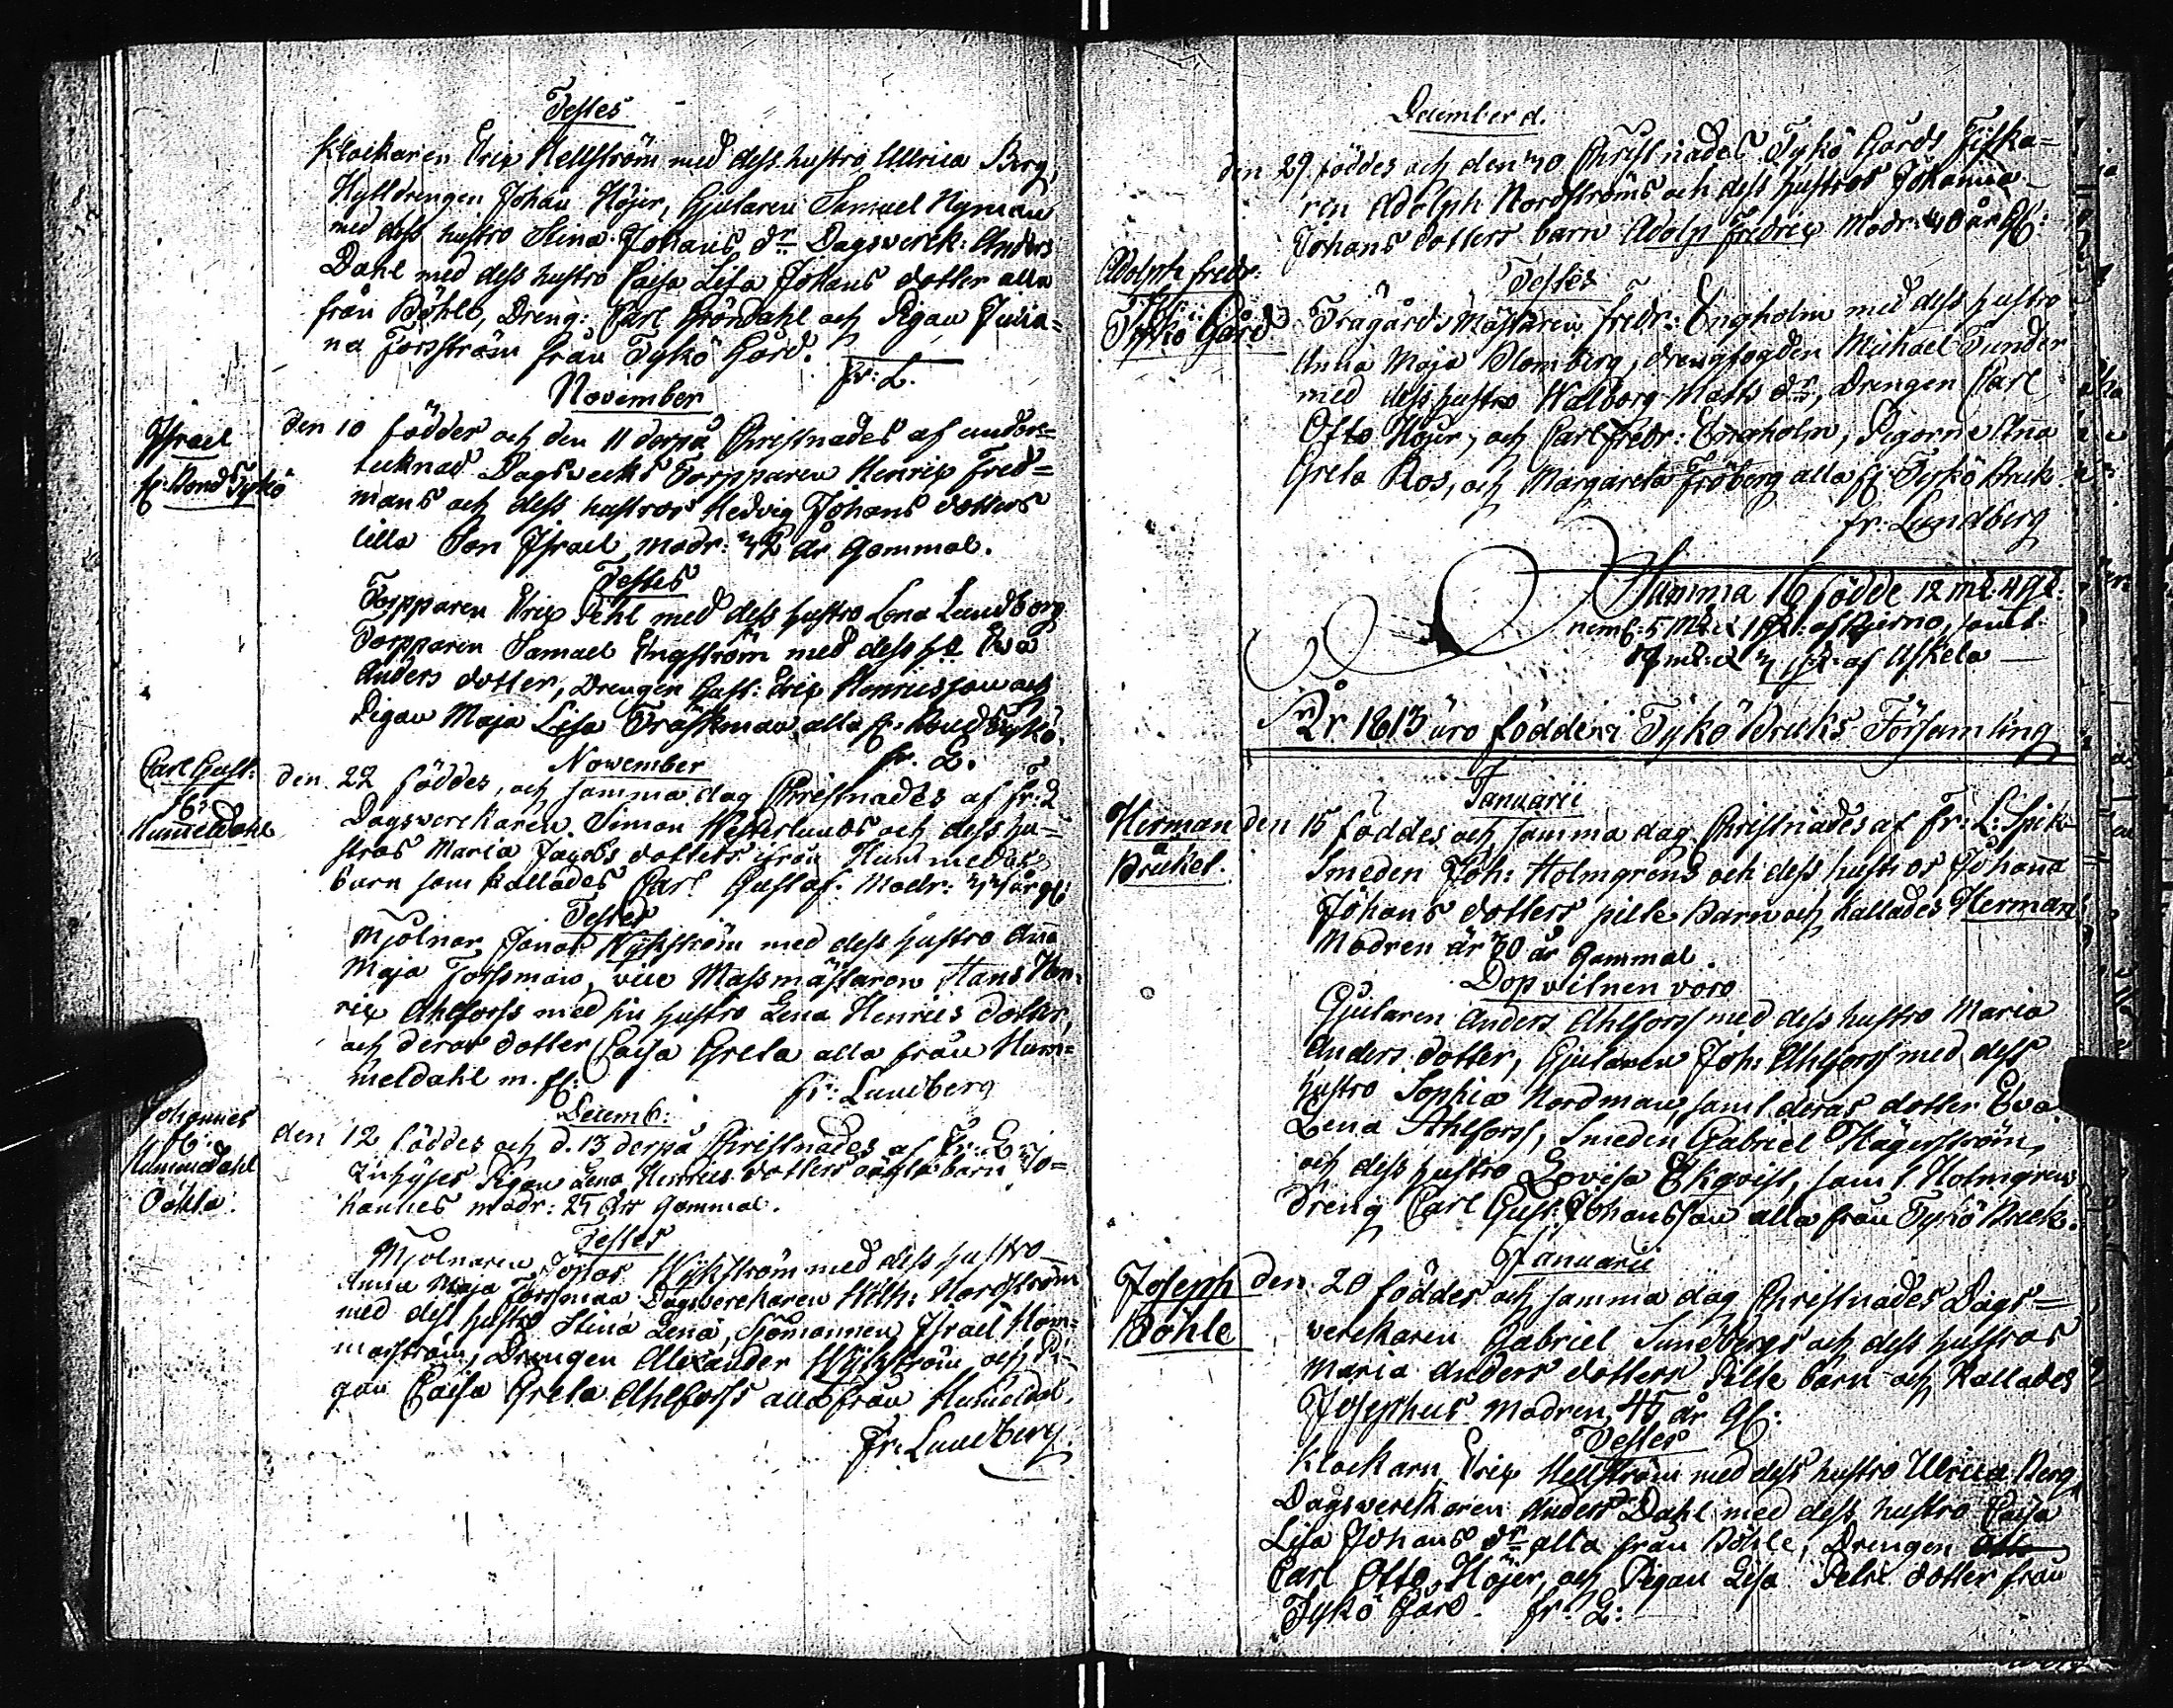 Testes
Klockaren Eric Hellström med dess hustro Ullrica Berg,
Hyttdrengen Johan Höjer, Gjutaren Samuel Nyman
med dess hustro Stina Johans dr Dagsverck: Anders
Dahl med dess hustro Caisa Lisa Johans dotter alla
från Böhle, Dreng: Carl Gröndahl och Pigan Julia=
na Forsström från Tykö Gård.
fr: L.
November
Israel
fr: Bond Tykö
den 10 födder och den 11 derpå Christnades af under=
tecknad Dagsvercks Torpparen Henric Fred=
mans och dess hustros Hedvig Johans dotters
lilla Son Israel, modr: 42 år gammal.
Testes
Torpparen Eric Pehl med dess hustro Lena Lundborg
Torpparen Samuel Engström med dess h: Eva
Anders dotter, Drengen Gust: Eric Henricsson och
Pigan Maja Lisa Träskman alla fr: Bond Tykö.
fr. L.
November
Carl Gust:
Hummeldahl
den 22 föddes, och samma dag Christnades af fr: L
Dagsverckaren Simon Westerlunds och dess hu=
stros Maria Jacobs dotters ifrån Hummeldahl
barn som kallades Carl Gustaf. Modr: år gl:
Testes
Mjölnar Jonas Wykström med dess hustro Anna
Maja Forssman, vice Massmästaren Hans Hen=
ric Ahlforss med sin hustro Lena Henrics dotter,
och deras dotter Caisa Greta alla från Hum=
meldahl m. fl:
fr: Lundberg
Decemb:
Johannes
Hummeldahl
Oäkta.
den 12 föddes och d. 13 derpå Christnades af Fr: L
Inhyses Pigan Lena Henrics dotters oäkta barn Jo=
hannes modr: 25 års gammal.
Testes
Mjölnaren Jonas Wykström med dess hustro
Anna Maja Forssman Dagsverckaren Wilh: Nordström
med dess hustro Stina Lena, Sjömannen Israel Hom=
marström, Drengen Alexander Wykström och Pi=
gan Caisa Greta Ahlforss alla från Hummeldal.
Fr: Lundberg
December d.
den 29 föddes och den 30 Christnades Tykö Gårds Fiska=
ren Adolph Nordströms och dess hustros Johanna
Johans dotters barn Adolp Fredric Modr: 40 år gl:
Adolph fredr:
Tykö Gård
Testes
Trägårds Mästaren Fredr: Engholm med dess hustro
Anna Maja Blomberg, drengfogden Michael Tunder
med dess hustro Walborg Matts dr, Drengen Carl
Otto Höjer, och Carl Fredr: Engholm, Pigorne Anna
Greta Ros, och Margareta Fröberg alla fr: Tykö Bruk.
fr: Lundberg
Summa 16 födde 12 mk: 4 qk:
neml: 5 mk: 1 qk: af Bjerno, samt
mk: qk: af Uskela
År 1813 äro födde i Tykö Bruks Församling
Januarii
Herman
Bruket.
den 15 föddes och samma dag Christnades af fr: L: Spik
Smeden Joh: Holmgrens och dess hustros Johanna
Johans dotters pille Barn och kallades Herman
Modren är 30 år gammal.
Dopvitnen voro
Gjutaren Anders Ahlforss med dess hustro Maria
Anders dotter, Gjutaren Joh: Ahlforss med dess
hustro Sophia Nordman, samt deras dotter Eva
Lena Ahlforss, Smeden Gabriel Hägerström
och dess hustro Lovisa Ekqvist, samt Holmgrens
Dreng Carl Gust: Johansson alla från Tykö Bruk.
Januarii
Joseph
Böhle
den 20 föddes och samma dag Christnades Dags=
verckaren Gabriel Sundbergs och dess hustros
Maria Anders dotters Pilte barn och kallades
Josephus modren 45 år gl:
Testes
Klockarn Eric Hellström med dess hustro Ulrica Berg,
Dagsverckaren Anders Dahl med dess hustro Caisa
Lisa Johans dr alla från Böhle, Drengen
Carl Otto Höjer, och Pigan Lisa Petri dotter från
Tykö Gård. fr: L: